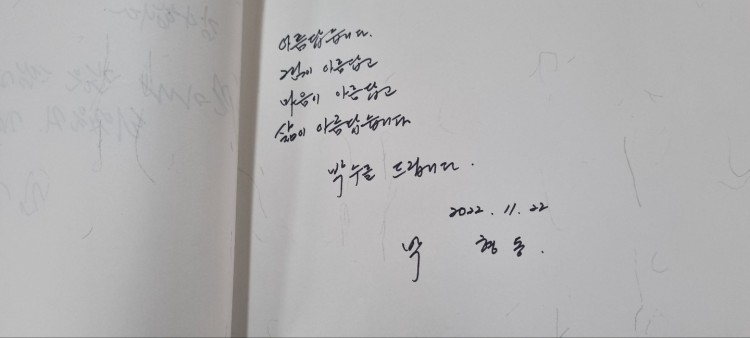 아름답습니다.
그림이 아름답고
마음이 아름답고
삶이 아름답습니다
박수를 드립니다.
2022. 11. 22
박 형 동.